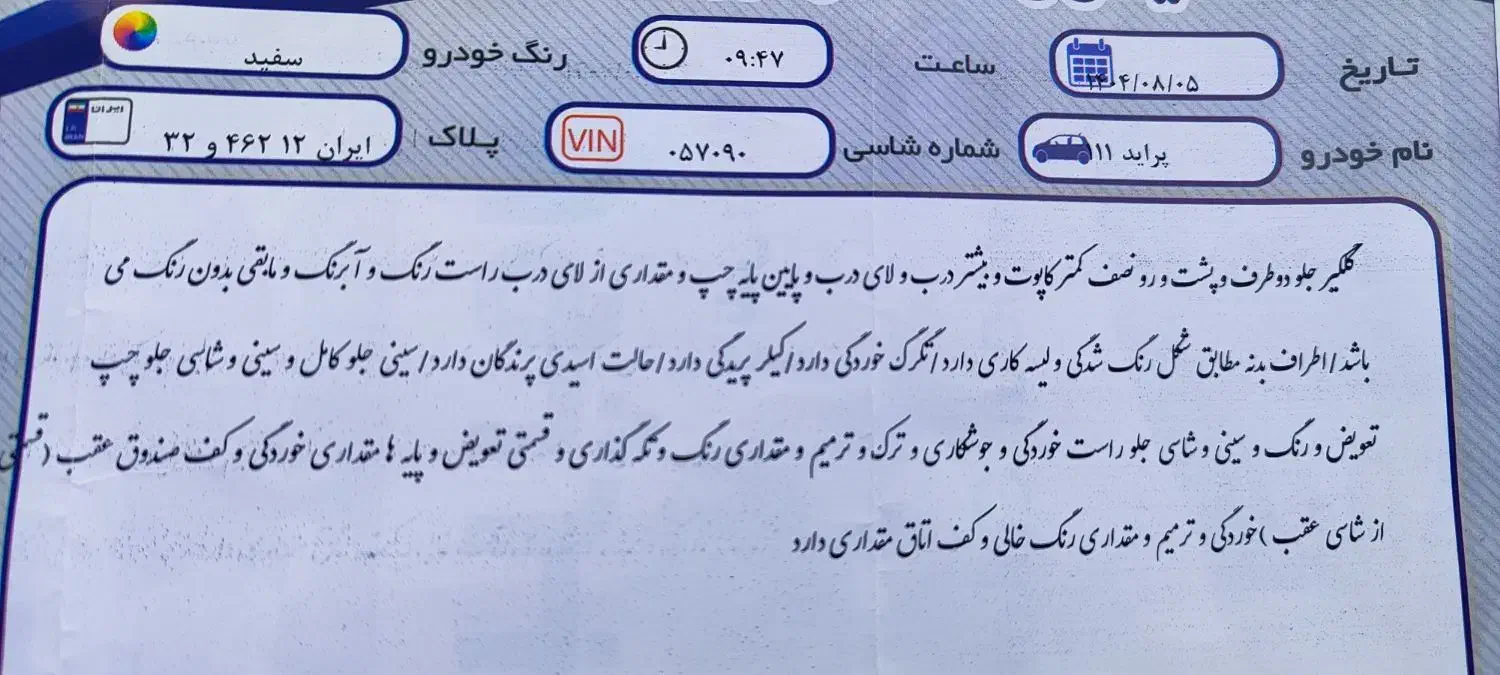 تاریخ ۱۴۰۴/۰۸/۰۵ ساعت ۰۹:۴۷ رنگ خودرو سفید
نام خودرو پراید ۱۱۱ شماره شاسی VIN ۰۵۷۰۹۰ پلاک ایران ۱۲ ۴۶۲ و ۳۲ ایران
گلگیر جلو دو طرف و پشت و رو نصف کمتر کاپوت و بیشتر درب و لای درب و پایین پایه چپ و مقداری از لای درب راست رنگ و آبرنگ و مابقی بدون رنگ می
باشد / اطراف بدنه مطابق شکل رنگ شدگی و لیسه کاری دارد / تگرگ خوردگی دارد / کیلر پریدگی دارد / حالت اسیدی پرندگان دارد / سینی جلو کامل و سینی و شاسی جلو چپ
تعویض و رنگ و سینی و شاسی جلو راست خوردگی و جوشکاری و ترک و ترمیم و مقداری رنگ و تکه گذاری و قسمتی تعویض و پایه ها مقداری خوردگی و کف صندوق عقب (قسمتی
از شاسی عقب) خوردگی و ترمیم و مقداری رنگ خالی و کف اتاق مقداری دارد